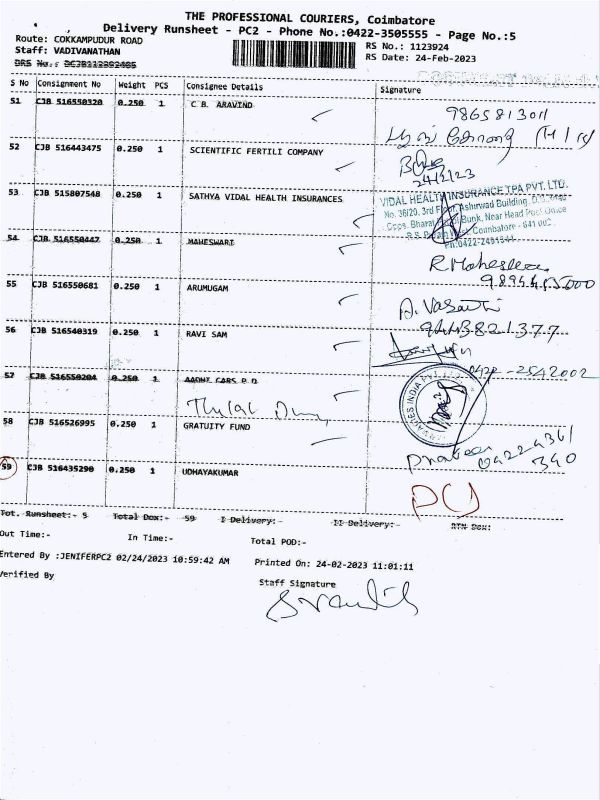 THE PROFESSIONAL COURIERS, Coimbatore
Delivery Runsheet - PC2 - Phone No.:0422-3505555 - Page No.:5
Route: COKKAMPUDUR ROAD
RS No.: 1123924
Staff: VADIVANATHAN
RS Date: 24-Feb-2023
DRS No.:
S No Consignment No Weight PCS Consignee Details Signature
51 CJB 516550320 0.250 1 C B. ARAVIND
9865813011
52 CJB 516443475 0.250 1 SCIENTIFIC FERTILI COMPANY
24/2/23
53 CJB 515807548 0.250 1 SATHYA VIDAL HEALTH INSURANCES
VIDAL HEALTH INSURANCE TPA PVT. LTD.
No. 36/20, 3rd Floor, Ashirwad Building, D.B. Road
Opps. Bharat Bunk, Near Head Post Office
Coimbatore - 641 002
54 CJB 516550447 0.250 1 MAHESWARI
R Maheswari
55 CJB 516550681 0.250 1 ARUMUGAM
A. Vasanthi
9443821377
56 CJB 516540319 0.250 1 RAVI SAM
0422-2542002
57 CJB 516550204 0.250 1 AADHI CARS P D
58 CJB 516526995 0.250 1 GRATUITY FUND
Praveen
0422 4361
340
59 CJB 516435290 0.250 1 UDHAYAKUMAR
Tot. Runsheet:- 5 Total Dox:- 59 I Delivery:- II Delivery:- RTN Dox:
Out Time:- In Time:- Total POD:-
Entered By :JENIFERPC2 02/24/2023 10:59:42 AM Printed On: 24-02-2023 11:01:11
Verified By
Staff Signature